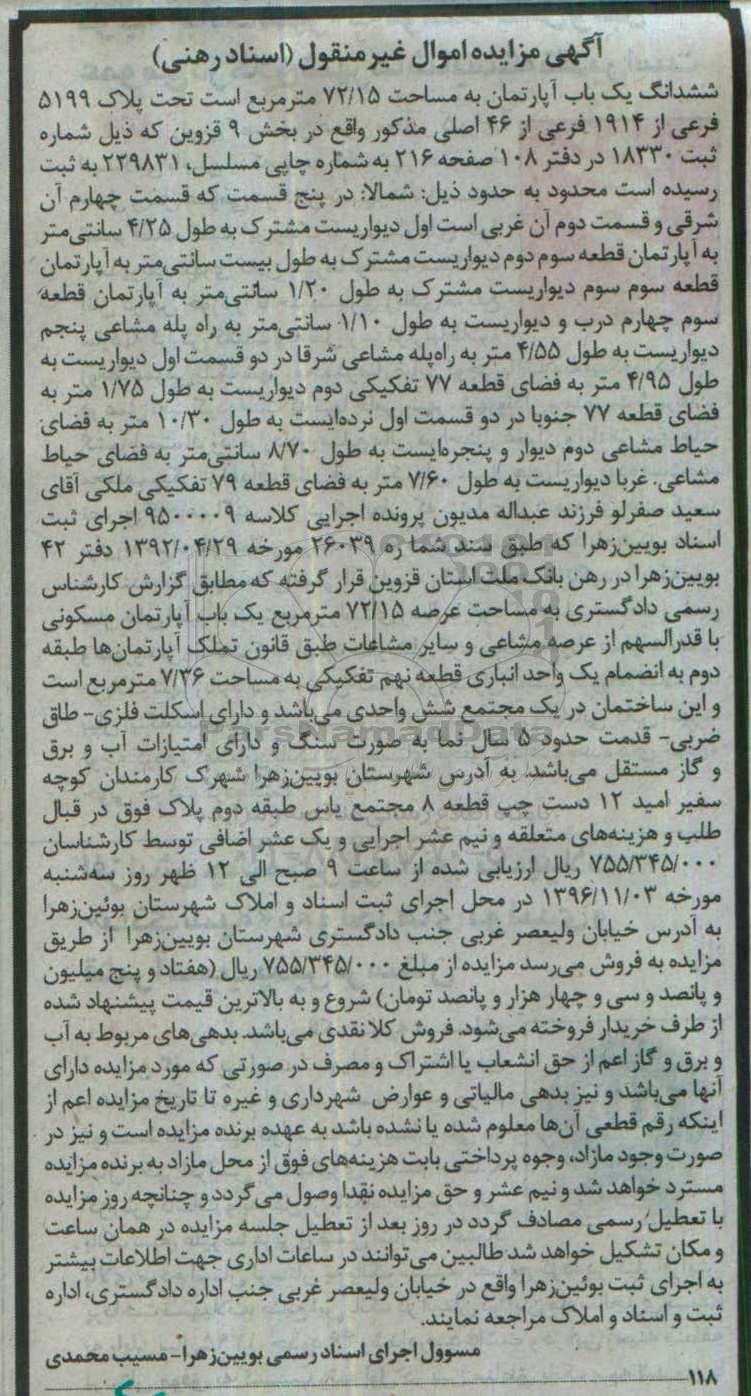 آگهی مزایده اموال غیرمنقول (اسناد رهنی)
ششدانگ یک باب آپارتمان به مساحت ۷۲/۱۵ مترمربع است تحت پلاک ۵۱۹۹
فرعی از ۱۹۱۴ فرعی از ۴۶ اصلی مذکور واقع در بخش ۹ قزوین که ذیل شماره
ثبت ۱۸۳۳۰ در دفتر ۱۰۸ صفحه ۲۱۶ به شماره چاپی مسلسل، ۲۲۹۸۳۱ به ثبت
رسیده است محدود به حدود ذیل: شمالا: در پنج قسمت که قسمت چهارم آن
شرقی و قسمت دوم آن غربی است اول دیواریست مشترک به طول ۴/۲۵ سانتی‌متر
به آپارتمان قطعه سوم دوم دیواریست مشترک به طول بیست سانتی‌متر به آپارتمان
قطعه سوم سوم دیواریست مشترک به طول ۱/۲۰ سانتی‌متر به آپارتمان قطعه
سوم چهارم درب و دیواریست به طول ۱/۱۰ سانتی‌متر به راه پله مشاعی پنجم
دیواریست به طول ۴/۵۵ متر به راه‌پله مشاعی شرقا در دو قسمت اول دیواریست به
طول ۴/۹۵ متر به فضای قطعه ۷۷ تفکیکی دوم دیواریست به طول ۱/۷۵ متر به
فضای قطعه ۷۷ جنوبا در دو قسمت اول نرده‌ایست به طول ۱۰/۳۰ متر به فضای
حیاط مشاعی دوم دیوار و پنجره‌ایست به طول ۸/۷۰ سانتی‌متر به فضای حیاط
مشاعی. غربا دیواریست به طول ۷/۶۰ متر به فضای قطعه ۷۹ تفکیکی ملکی آقای
سعید صفرلو فرزند عبداله مدیون پرونده اجرایی کلاسه ۹۵۰۰۰۰۹ اجرای ثبت
اسناد بویین‌زهرا که طبق سند شما ره ۲۶۰۳۹ مورخه ۱۳۹۲/۰۴/۲۹ دفتر ۴۲
بویین‌زهرا در رهن بانک ملت استان قزوین قرار گرفته که مطابق گزارش کارشناس
رسمی دادگستری به مساحت عرصه ۷۲/۱۵ مترمربع یک باب آپارتمان مسکونی
با قدرالسهم از عرصه مشاعی و سایر مشاعات طبق قانون تملک آپارتمان‌ها طبقه
دوم به انضمام یک واحد انباری قطعه نهم تفکیکی به مساحت ۷/۳۶ مترمربع است
و این ساختمان در یک مجتمع شش واحدی می‌باشد و دارای اسکلت فلزی- طاق
ضربی- قدمت حدود ۵ سال نما به صورت سنگ و دارای امتیازات آب و برق
و گاز مستقل می‌باشد. به آدرس شهرستان بویین‌زهرا شهرک کارمندان کوچه
سفیر امید ۱۲ دست چپ قطعه ۸ مجتمع یاس طبقه دوم پلاک فوق در قبال
طلب و هزینه‌های متعلقه و نیم عشر اجرایی و یک عشر اضافی توسط کارشناسان
۷۵۵/۳۴۵/۰۰۰ ریال ارزیابی شده از ساعت ۹ صبح الی ۱۲ ظهر روز سه‌شنبه
مورخه ۱۳۹۶/۱۱/۰۳ در محل اجرای ثبت اسناد و املاک شهرستان بوئین‌زهرا
به آدرس خیابان ولیعصر غربی جنب دادگستری شهرستان بویین‌زهرا از طریق
مزایده به فروش می‌رسد مزایده از مبلغ ۷۵۵/۳۴۵/۰۰۰ ریال (هفتاد و پنج میلیون
و پانصد و سی و چهار هزار و پانصد تومان) شروع و به بالاترین قیمت پیشنهاد شده
از طرف خریدار فروخته می‌شود. فروش کلا نقدی می‌باشد. بدهی‌های مربوط به آب
و برق و گاز اعم از حق انشعاب یا اشتراک و مصرف در صورتی که مورد مزایده دارای
آنها می‌باشد و نیز بدهی مالیاتی و عوارض شهرداری و غیره تا تاریخ مزایده اعم از
اینکه رقم قطعی آن‌ها معلوم شده یا نشده باشد به عهده برنده مزایده است و نیز در
صورت وجود مازاد، وجوه پرداختی بابت هزینه‌های فوق از محل مازاد به برنده مزایده
مسترد خواهد شد و نیم عشر و حق مزایده نقدا وصول می‌گردد و چنانچه روز مزایده
با تعطیل رسمی مصادف گردد در روز بعد از تعطیل جلسه مزایده در همان ساعت
و مکان تشکیل خواهد شد طالبین می‌توانند در ساعات اداری جهت اطلاعات بیشتر
به اجرای ثبت بوئین‌زهرا واقع در خیابان ولیعصر غربی جنب اداره دادگستری، اداره
ثبت و اسناد و املاک مراجعه نمایند.
مسوول اجرای اسناد رسمی بویین‌زهرا- مسیب محمدی
۱۱۸
ParsNamadData